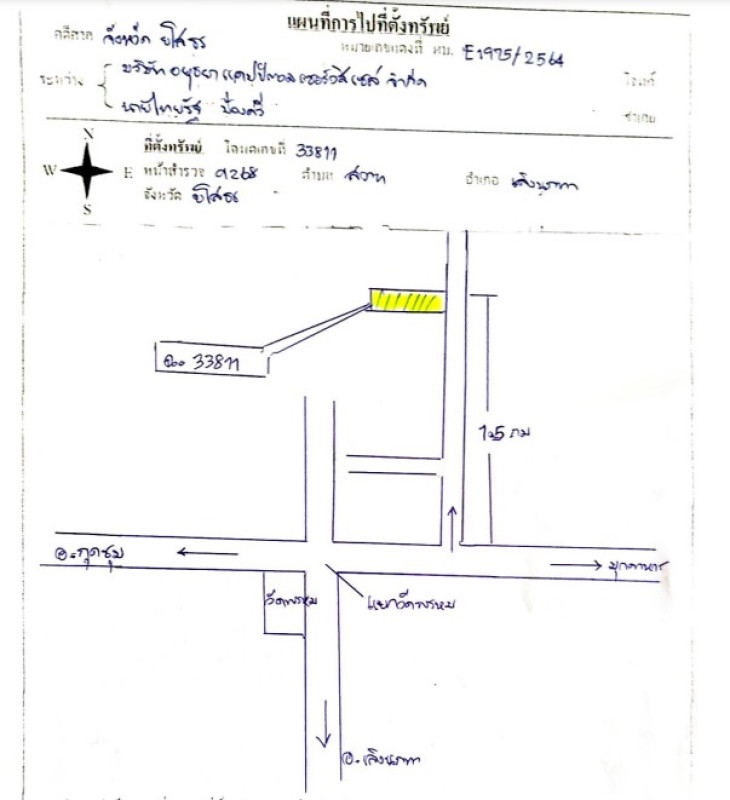 แผนที่การไปที่ตั้งทรัพย์
คดีศาล จังหวัด ยโสธร หมายเลขแดงที่ ผบ. E1975/2564
ระหว่าง บริษัท อยุธยา แคปปิตอล เซอร์วิสเซส จำกัด โจทก์
นายไทยรัฐ จำเลย
N
W E
S
ที่ตั้งทรัพย์ โฉนดเลขที่ 33811
หน้าสำรวจ 9268 ตำบล สวาท อำเภอ เลิงนกทา
จังหวัด ยโสธร
ฉ. 33811
1.5 กม
อ.กุดชุม
มุกดาหาร
วัดพรหม
แยกวัดพรหม
อ.เลิงนกทา